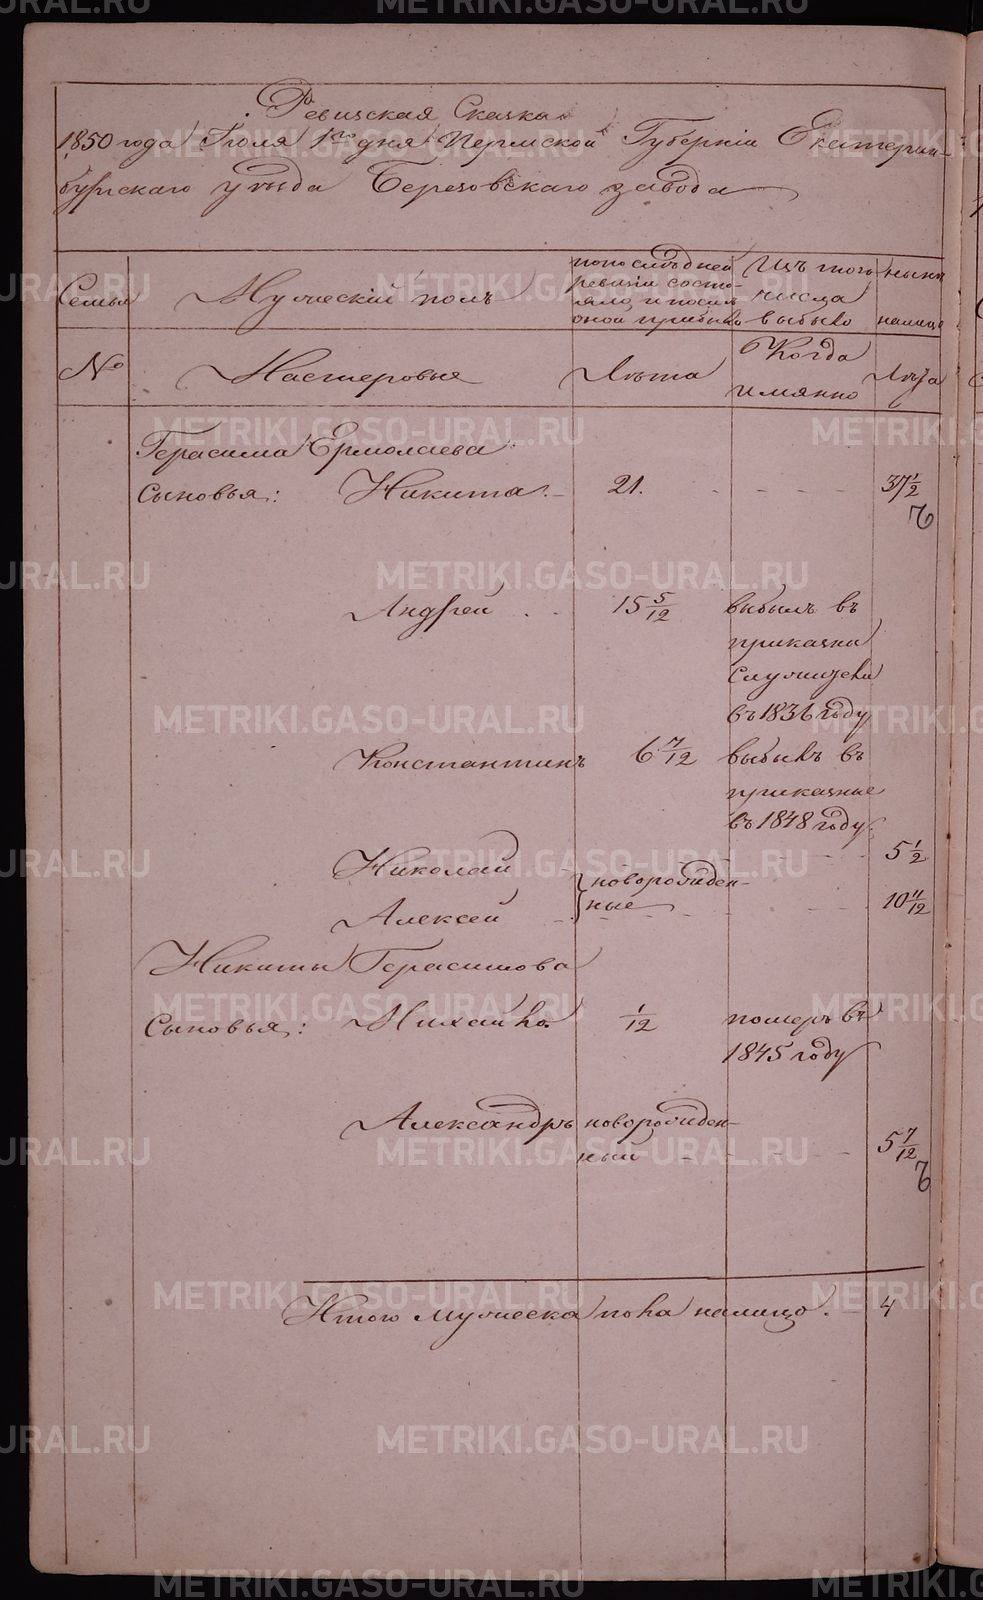 Ревизская Сказка
1850 года Июля 1го дня Пермской Губернiи Екатерин-
бургскаго уѣзда Березовскаго завода
Семья
Мужескiй полъ
по последней
ревизiи состо-
яло, и после
оной прибыло
Изъ того
числа
выбыло
нынѣ
налицо
№
Мастеровые
Лѣта
Когда
имянно
Лѣта
Герасима Ермолаева
Сыновья: Никита. 21. 37 1/2
Андрей 15 5/12 выбылъ въ
приказны
служители
въ 1836 году
Константинъ 6 7/12 выбылъ въ
приказные
въ 1848 году.
Николай 5 1/2
новорожден-
ные
Алексей 10 11/12
Никиты Герасимова
Сыновья: Михайла 1/12 померъ въ
1845 году
Александръ новорожден-
ный 5 7/12
Итого мужеска пола налицо. 4
METRIKI.GASO-URAL.RU